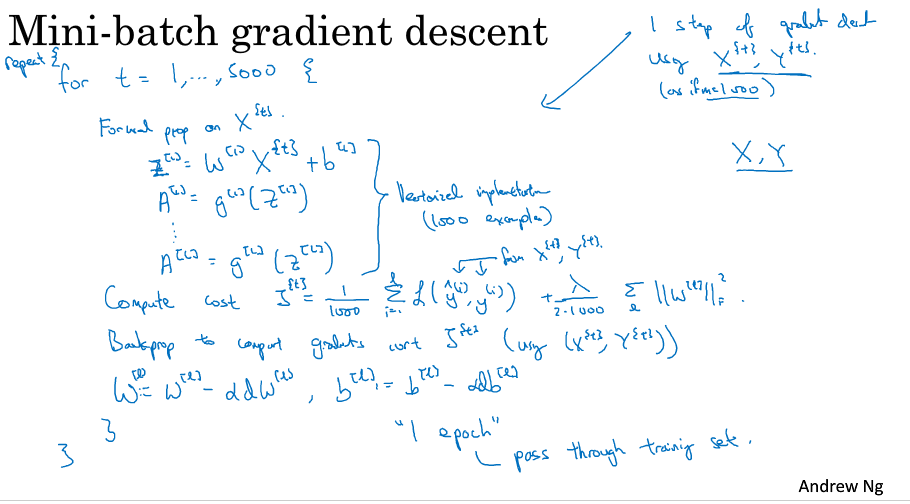 Mini-batch gradient descent
1 step of gradient descent
using X^{t}, Y^{t}.
(as if m=1000)
repeat {
for t = 1, ..., 5000 {
X, Y
Forward prop on X^{t}.
Z^[1] = W^[1] X^{t} + b^[1]
A^[1] = g^[1](Z^[1])
⋮
A^[L] = g^[L](Z^[L])
Vectorized implementation
(1000 examples)
from X^{t}, Y^{t}.
Compute cost J^{t} = 1/1000 Σ_{i=1}^{l} L(ŷ^(i), y^(i)) + λ/(2·1000) Σ_l ||W^[l]||_F^2.
Backprop to comput gradients wrt J^{t} (using (X^{t}, Y^{t}))
W^[l] := W^[l] - αdW^[l], b^[l] := b^[l] - αdb^[l]
}
}
"1 epoch"
pass through training set.
Andrew Ng